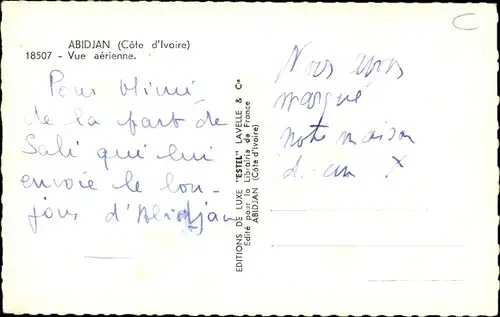 C
ABIDJAN (Côte d'Ivoire)
18507 - Vue aérienne.
Pour Mimi
de la part de
Sali qui lui
envoie le bon-
jour d'Abidjan
EDITIONS DE LUXE "ESTEL" LAVELLE & Cie
Edité pour la Librairie de France
ABIDJAN (Côte d'Ivoire)
Nous avons
marqué
notre maison
d'un X